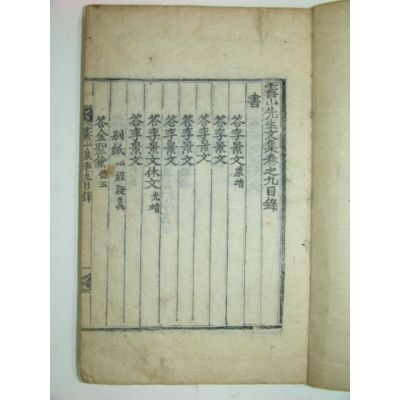 霽山先生文集卷之九目錄
書
答李景文象靖
答李景文
答李景文
答李景文
答李景文
答李景文休文光靖
答李景文
別紙心經疑義
答金聖兼
霽山集卷九目錄 一